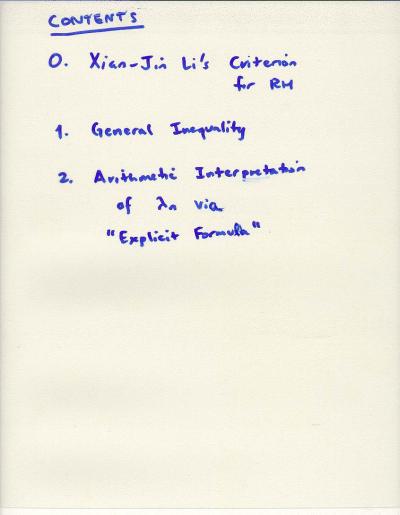 CONTENTS
0. Xian-Jin Li's Criterion
for RH
1. General Inequality
2. Arithmetic Interpretation
of λn via
"Explicit Formula"